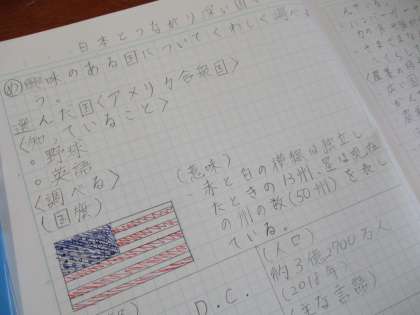 日本とつながり深い国
め 興味のある国についてくわしく調べ
う。
選んだ国〈アメリカ合衆国〉
〈知っていること〉
。野球
。英語
〈調べる〉
(国旗)
(意味)
・赤と白の横線は独立し
たときの13州、星は現在
の州の数(50州)を表し
ている。
D.C.
(人口)
約3億2700万人
(2018年)
(主な言語)